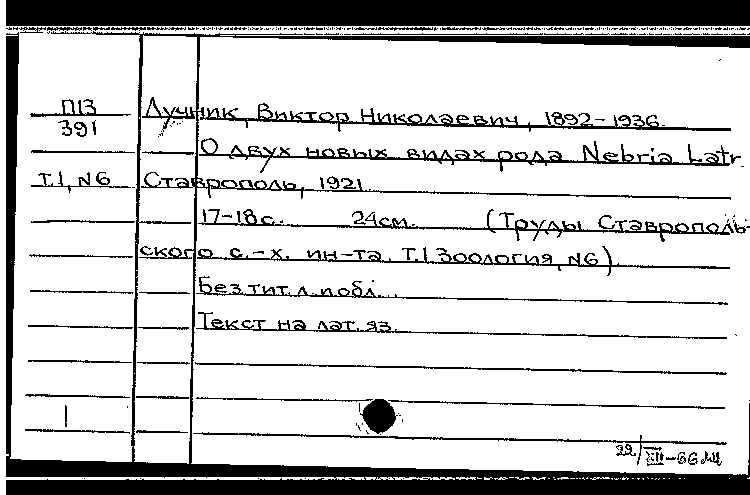 П13 Лучник, Виктор Николаевич, 1892-1936.
391
О двух новых видах рода Nebria Latr.
Т.1, №6 Ставрополь, 1921
17-18 с. 24см. (Труды Ставрополь-
ского с.-х. ин-та. Т.1 Зоология, №6)
Без тит. л. и обл.
Текст на лат. яз.
1
22/XII-66